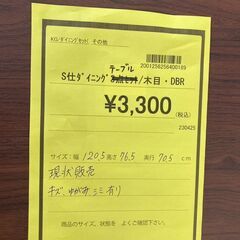 KG/ダイニングセット/その他
2001256256400189
テーブル
S仕ダイニング3点セット/木目・DBR
¥3,300
(税込)
230425
サイズ：幅 120.5 高さ 76.5 奥行 70.5 cm
現状販売
キズ、ゆがみ シミ有り
商品のサイズ、状態を よくご確認下さい。